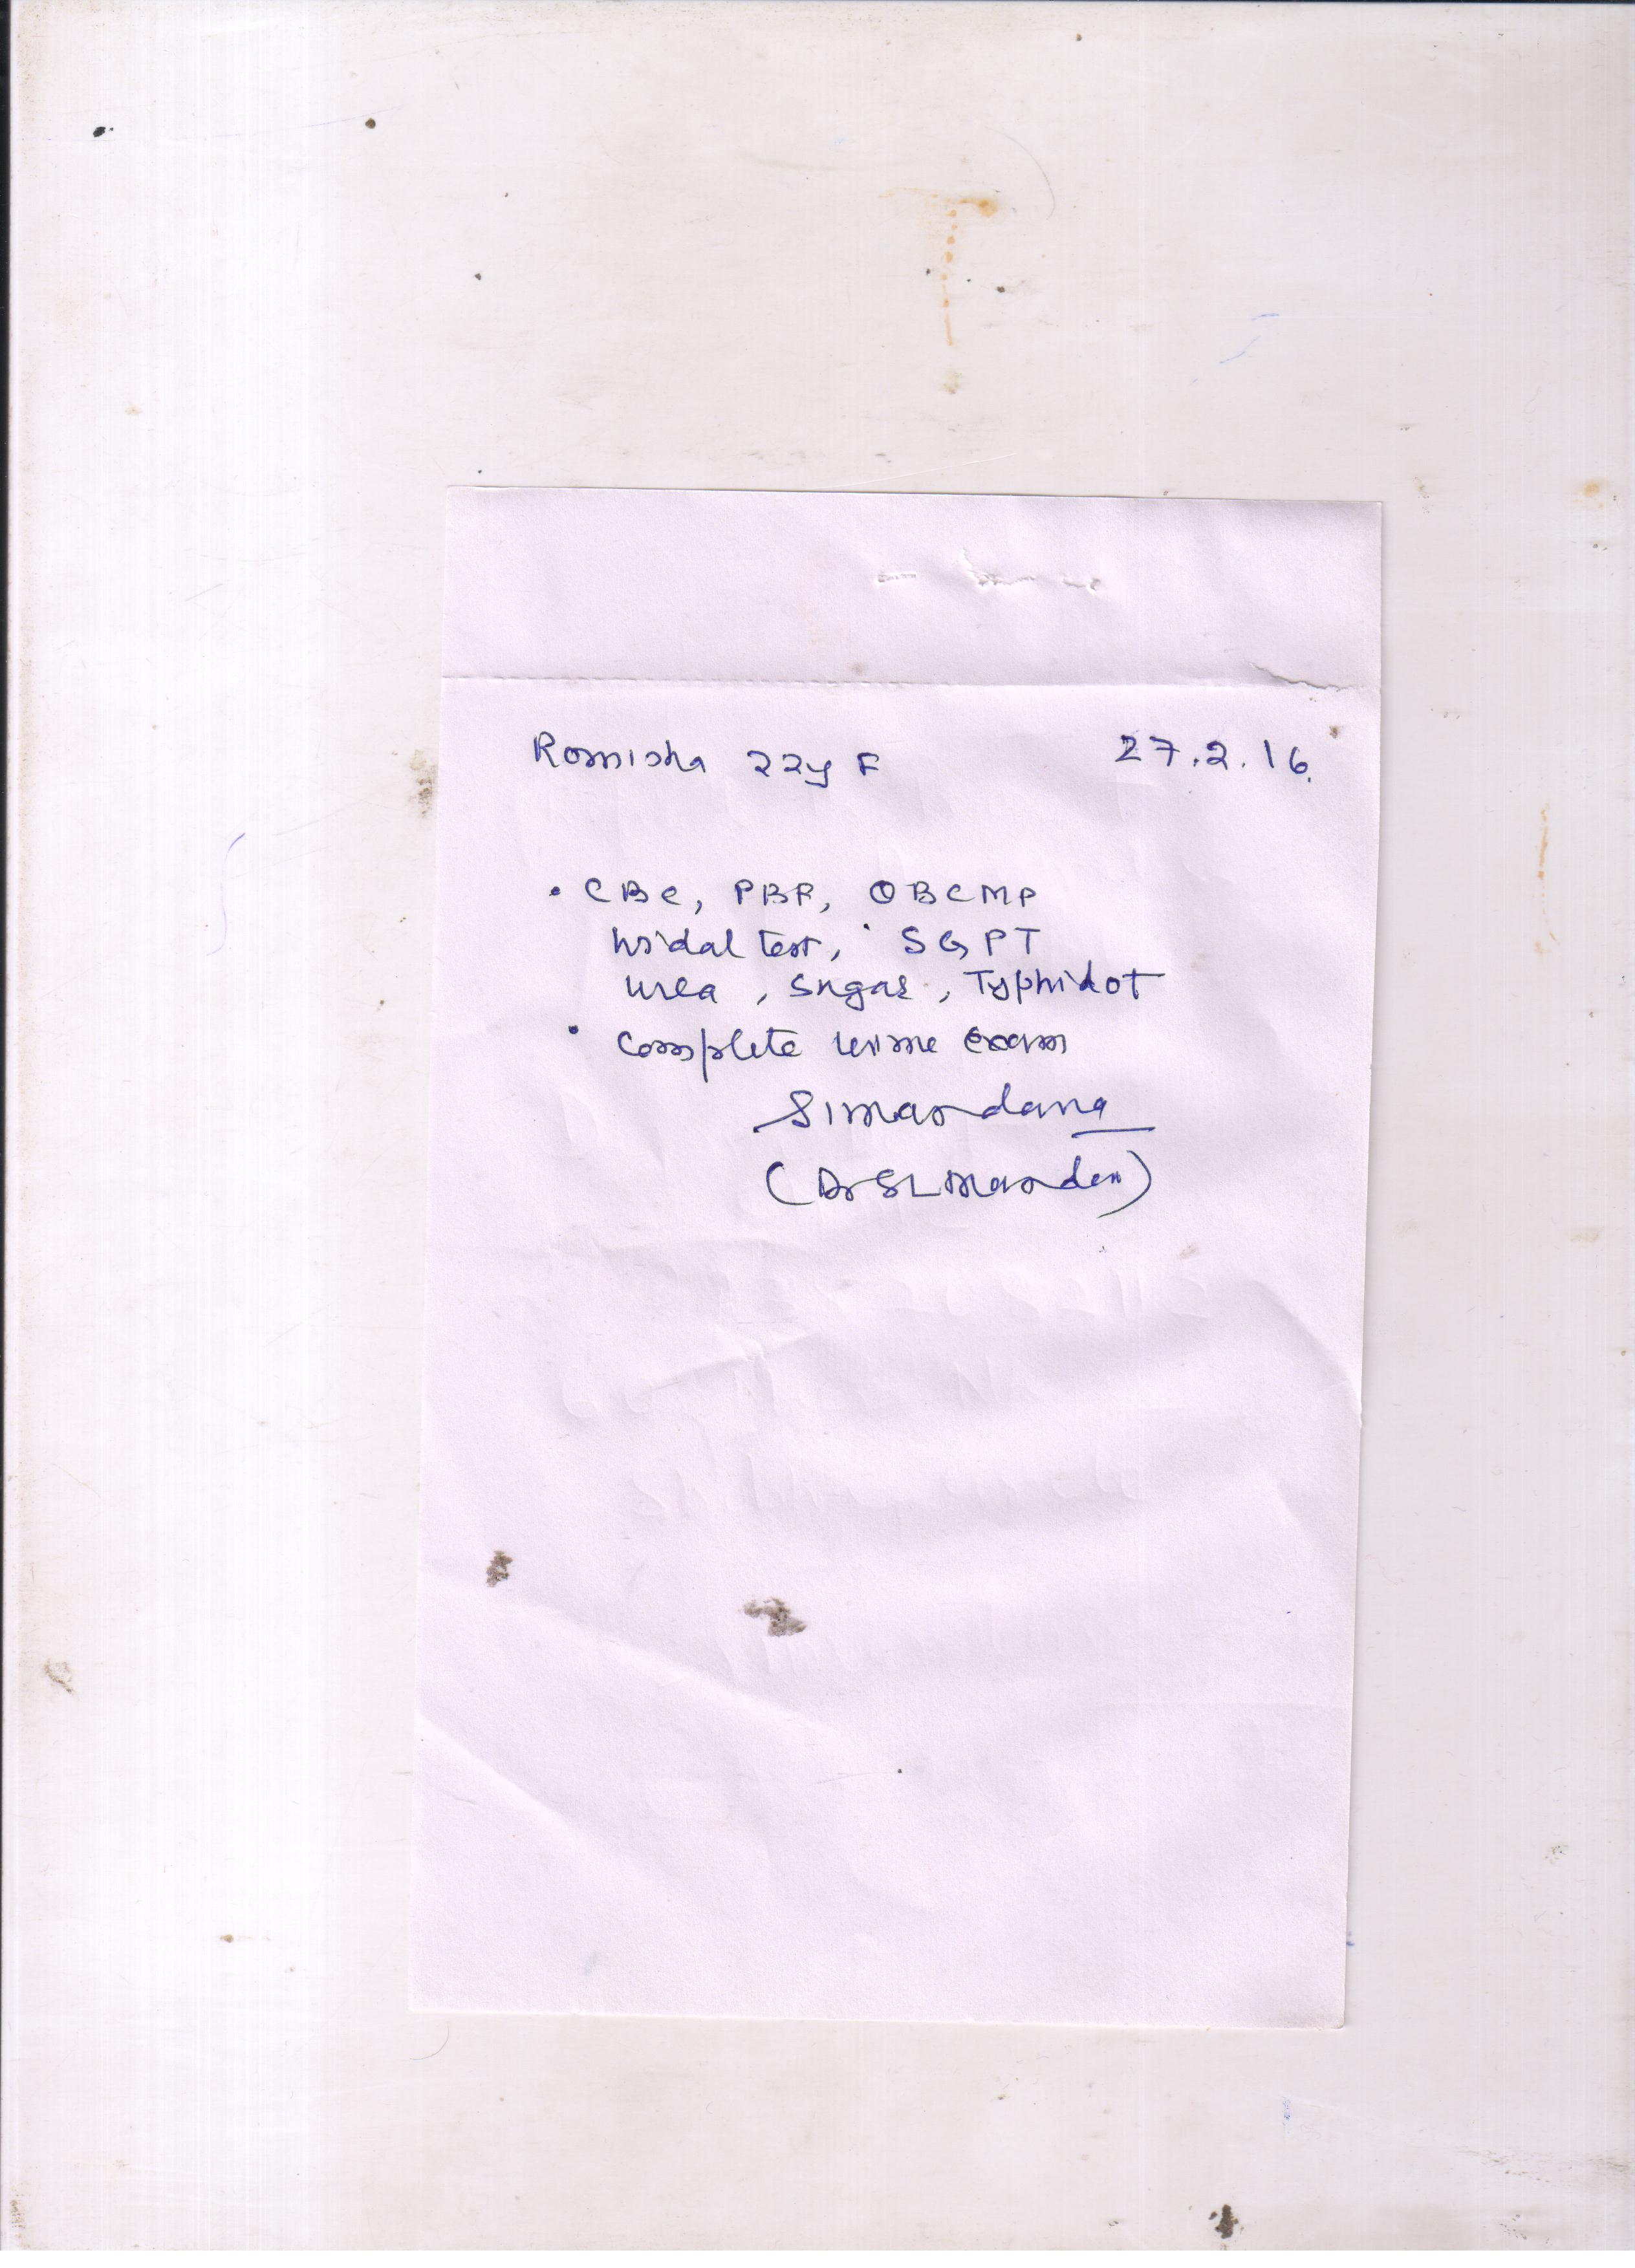 Romisha 22y F 27.2.16.
• CBC, PBF, QBCMP
Widal test, SGPT
Urea, Sugar, Typhidot
• Complete urine exam
(Dr SL